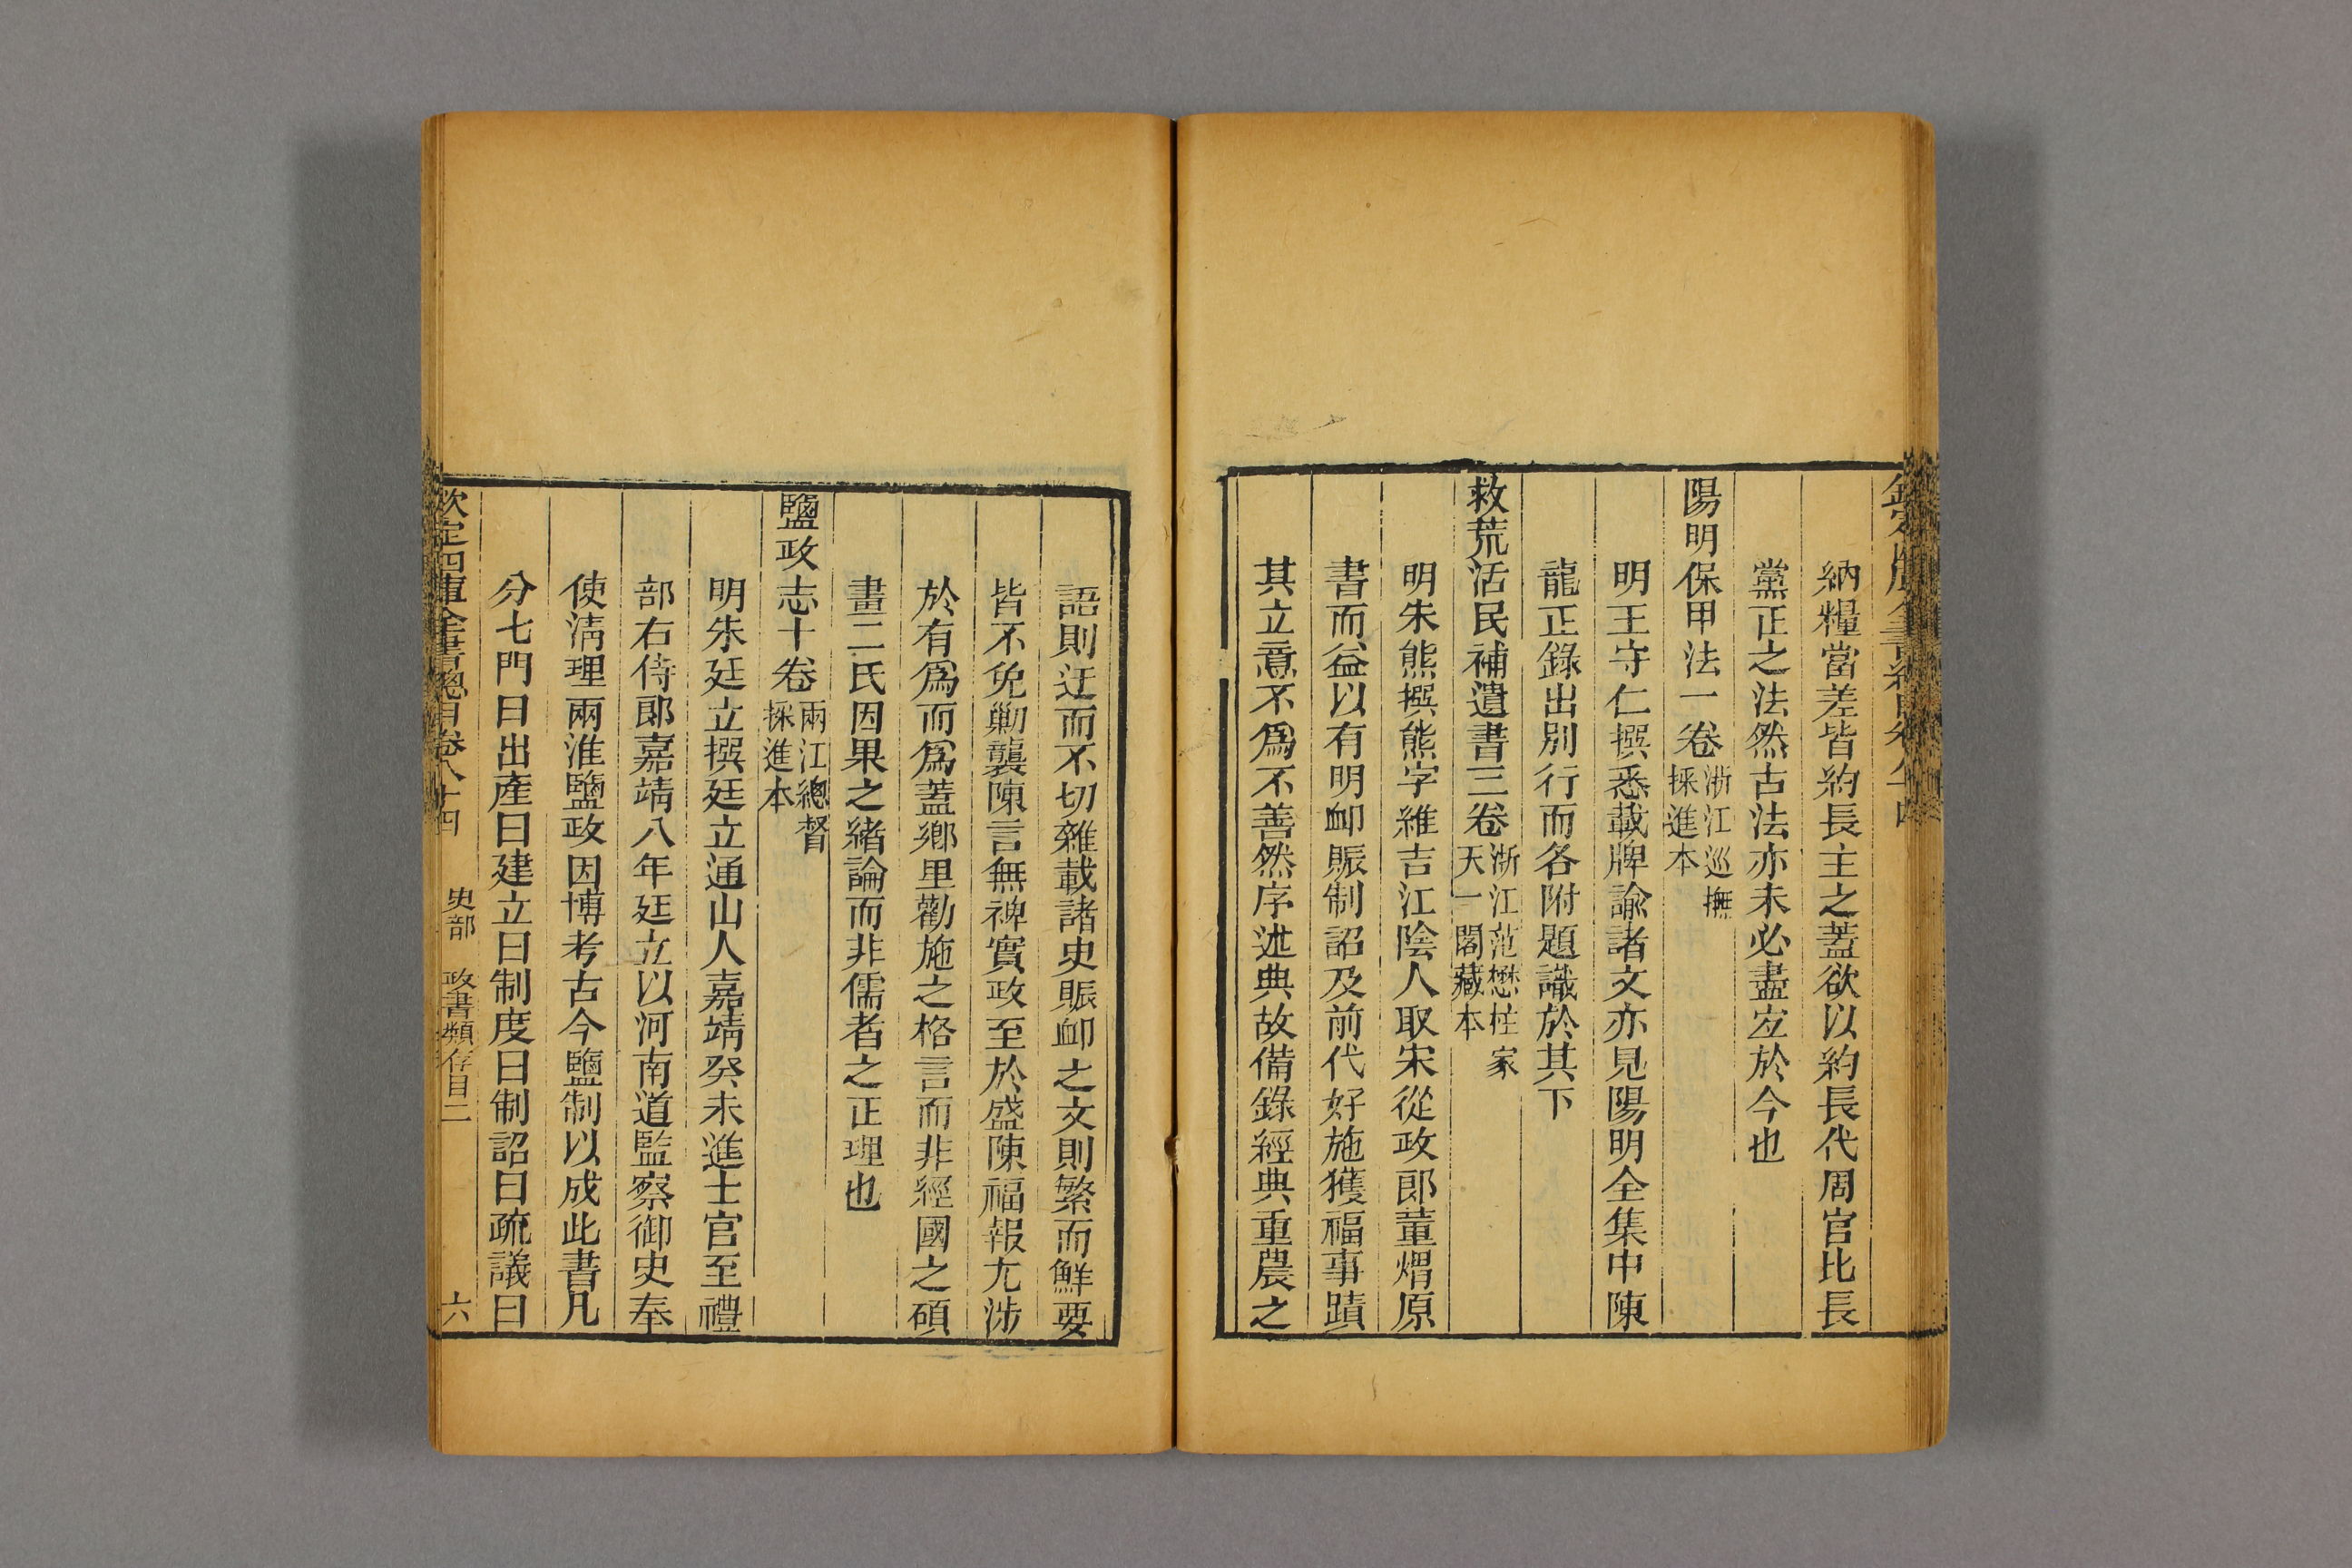 納糧當差皆約長主之蓋欲以約長代周官比長
黨正之法然古法亦未必盡宐於今也
陽明保甲法一卷浙江巡撫採進本
明王守仁撰悉載牌諭諸文亦見陽明全集中陳
龍正錄出別行而各附題識於其下
救荒活民補遺書三卷浙江范懋柱家天一閣藏本
明朱熊撰熊字維吉江陰人取宋從政郎董煟原
書而益以有明䘏賑制詔及前代好施獲福事蹟
其立意不爲不善然序述典故備錄經典重農之
語則迂而不切雜載諸史賑䘏之文則繁而鮮要
皆不免勦襲陳言無裨實政至於盛陳福報尤涉
於有爲而爲蓋鄕里勸施之格言而非經國之碩
畫二氏因果之緒論而非儒者之正理也
鹽政志十卷兩江總督採進本
明朱廷立撰廷立通山人嘉靖癸未進士官至禮
部右侍郎嘉靖八年廷立以河南道監察御史奉
使淸理兩淮鹽政因博考古今鹽制以成此書凡
分七門曰出產曰建立曰制度曰制詔曰疏議曰
欽定四庫全書總目卷八十四 史部 政書類存目二 六